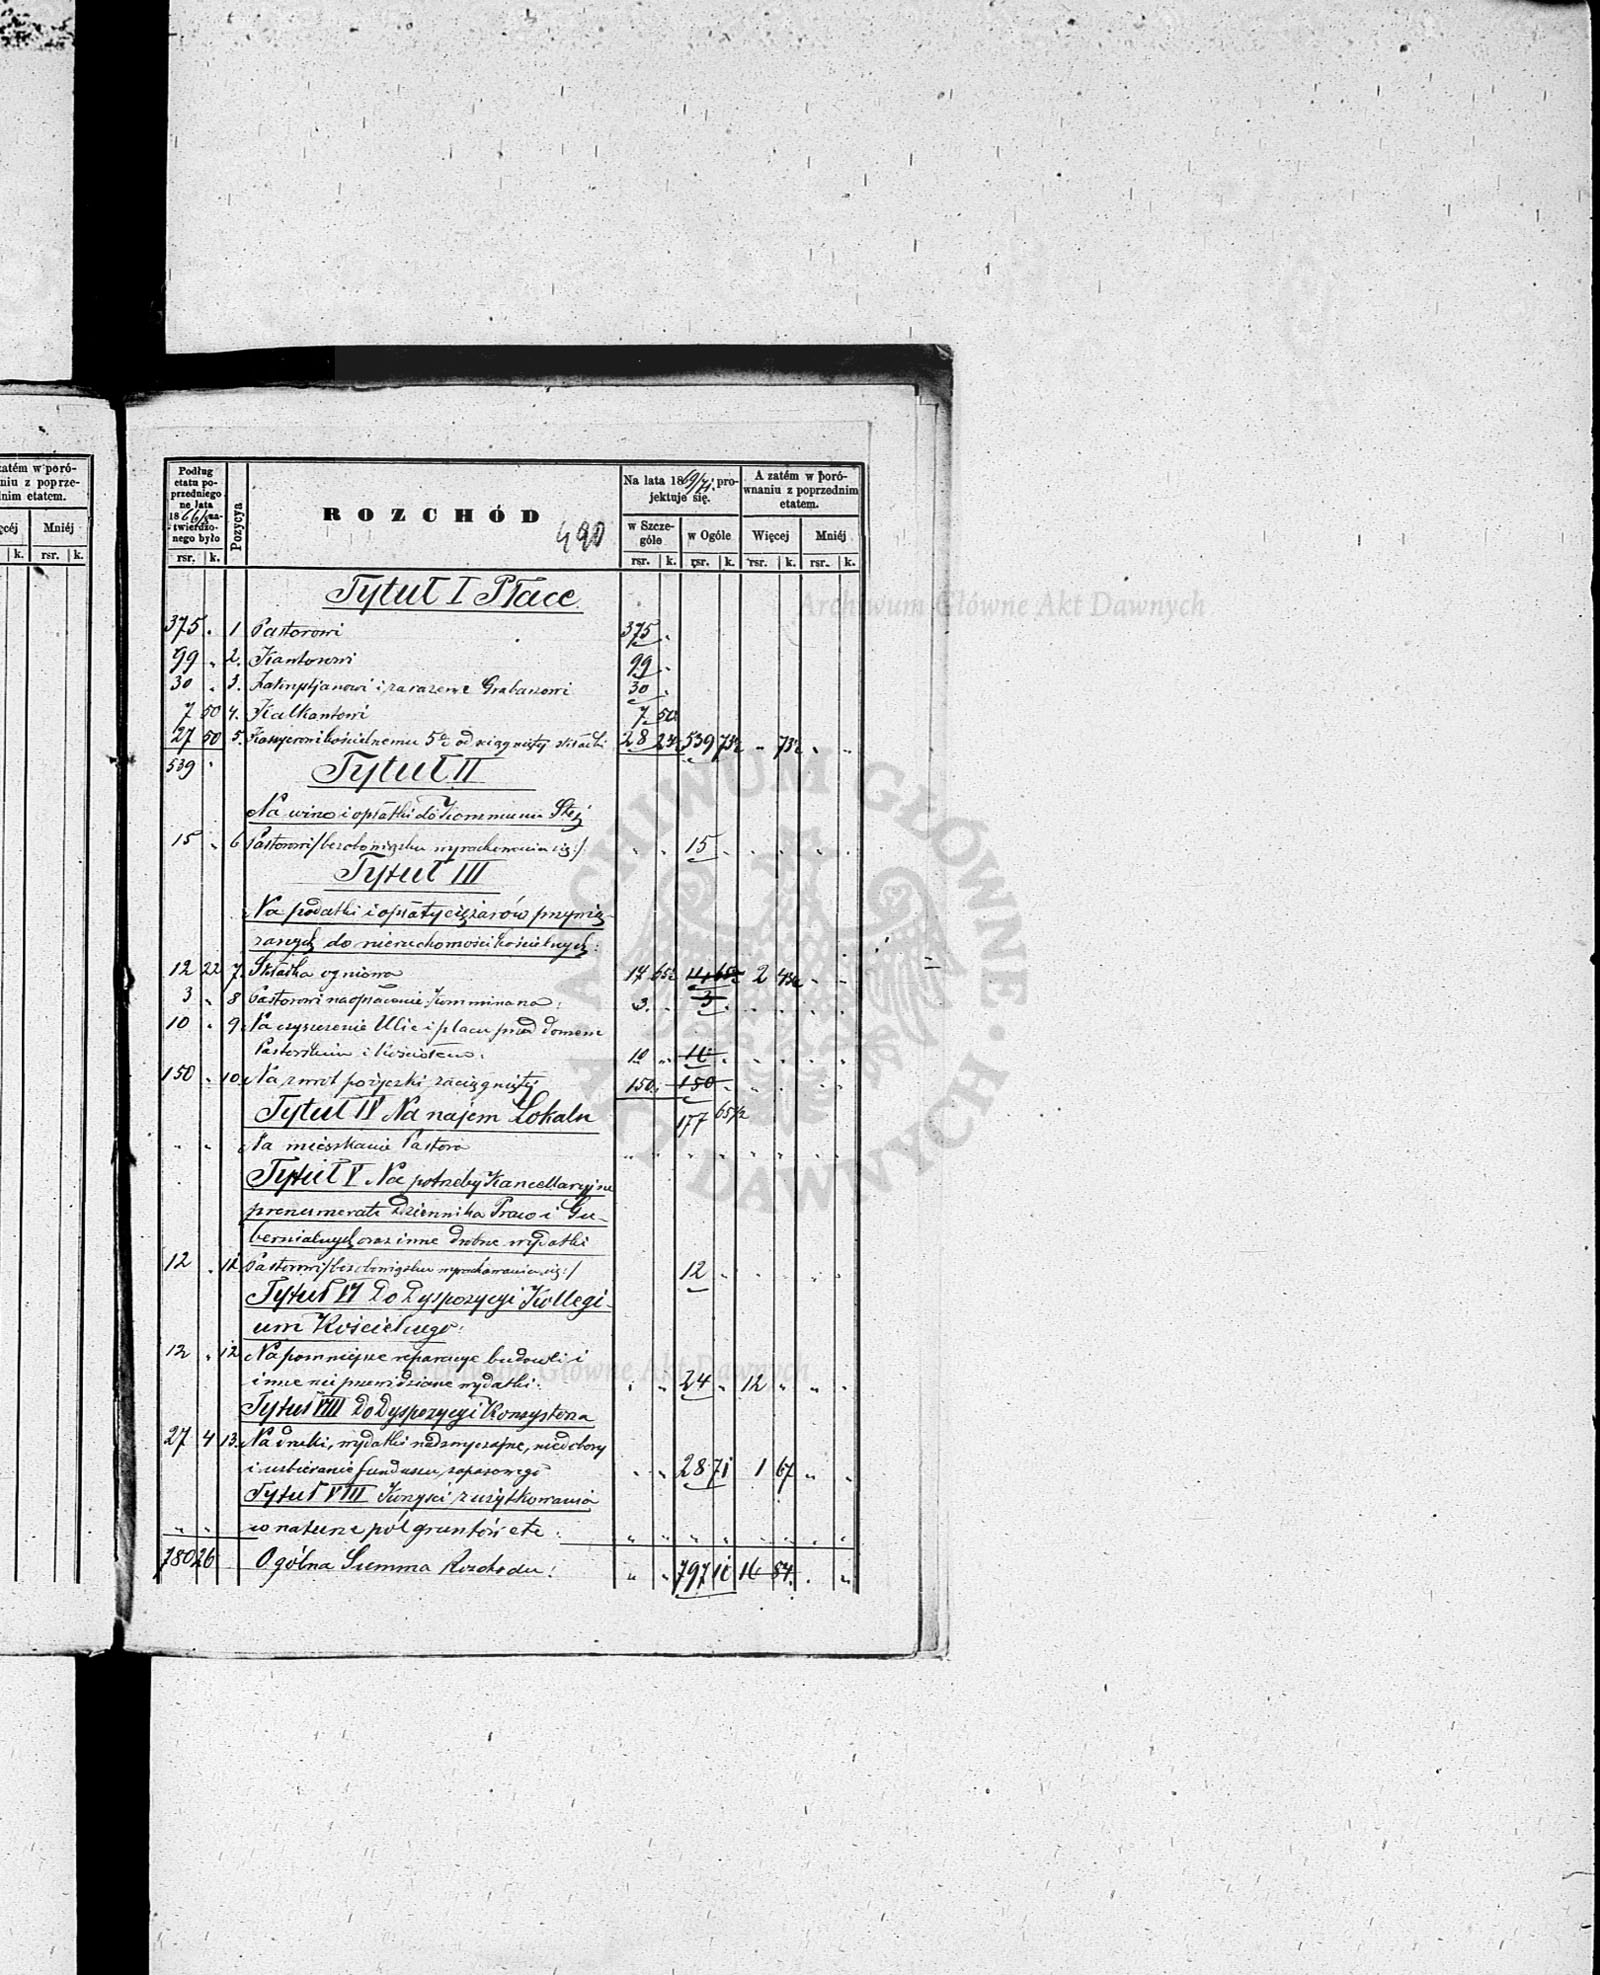 zatém w poró-
niu z poprze-
dnim etatem.
ęcéj Mniéj
k. rsr. k.
Podług
etatu po-
przedniego
na lata
1866/8 za-
twierdzo-
nego było
rsr. k.
Pozycya
ROZCHÓD
490
Na lata 1869/71 pro-
jektuje się.
w Szcze-
góle
w Ogóle
rsr. k. rsr. k.
A zatém w poró-
wnaniu z poprzednim
etatem.
Więcej Mniéj
rsr. k. rsr. k.
Tytuł I Płace
375 " 1 Pastorowi 375 "
99 " 2. Kantorowi 99 "
30 " 3. i zarazem Grabarzowi 30 "
7 50 4. Kalkantowi 7 50
27 50 5. Kassyerowi kościelnemu 5% od ściągniętej składki 28 23½ 539 73½ " 73½ " "
539 "
Tytuł II
Na wino i opłatki do Kommunii Stej
15 " 6 Pastorowi /bez obowiązku wyrachowania się:/ " " 15 " " " " "
Tytuł III
Na podatki i opłaty ciężarów przywią-
zanych do nieruchomości kościelnych:
12 22 7. Składka ogniowa 14 65½ 14 65½ 2 43½ " "
3 " 8 Pastorowi na opłacenie Kominiarza: 3 " 3 " " " " "
10 " 9 Na czyszczenie Ulic i placu przed domem
Pastorskim i Kościołem: 10 " 10 " " " " "
150 " 10. Na zwrot pożyczki zaciągniętej 150 " 150 " " " " "
177 65½
Tytuł IV Na najem Lokalu
" " Na mieszkanie Pastora " " " " " " " "
Tytuł V Na potrzeby Kancellaryjne
prenumeratę Dziennika Praw i Gu-
bernialnych oraz inne drobne wydatki
12 " 11. Pastorowi /bez obowiązku wyrachowania się:/ 12 " " " " "
Tytuł VI Do Dyspozycyi Kollegi-
um Kościelnego:
12 " 12. Na pomniejsze reparacye budowli i
inne nie przewidziane wydatki: " " 24 " 12 " " "
Tytuł VII Do Dyspozycyi Konsystorza
27 4 13. Na druki, wydatki nadzwyczajne, niedobory
i uzbieranie funduszu zapasowego " " 28 71 1 67 " "
Tytuł VIII Korzyści z użytkowania
" " w naturze pól gruntów etc: " " " " " " " "
780 26 Ogólna Summa Rozchodu: " " 797 10 16 84 " "
Archiwum Główne Akt Dawnych
ARCHIWUM GŁÓWNE AKT DAWNYCH
Archiwum Główne Akt Dawnych